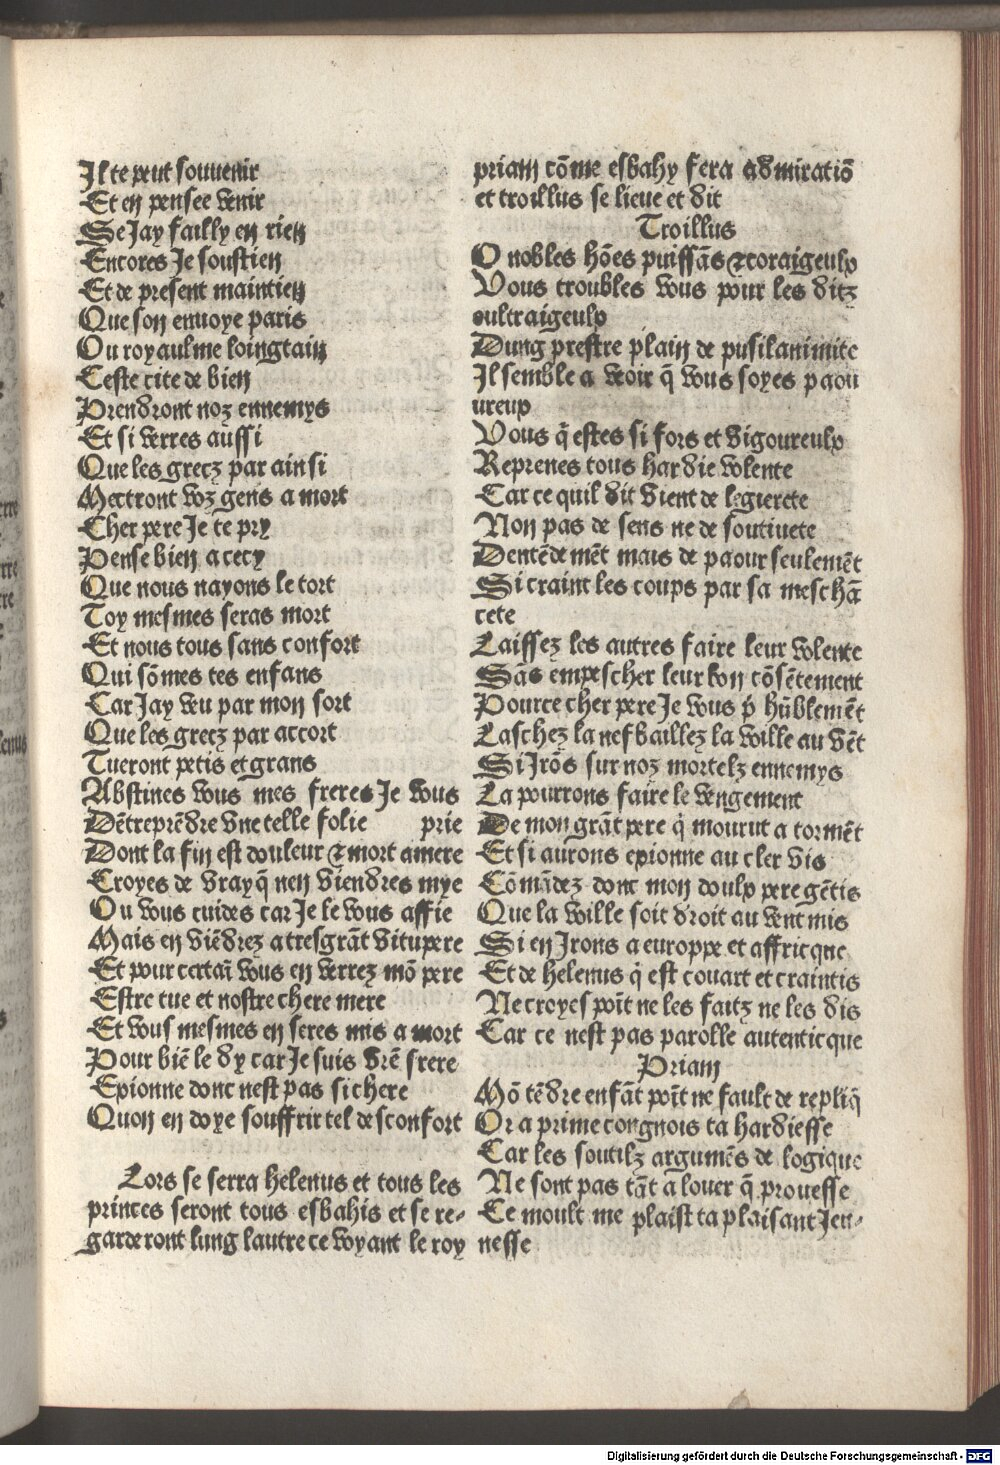 Il te peut souuenir
Et en pensee venir
Se Jay failly en rien
Encores Je soustien
Et de present maintien
Que son enuoye paris
Ou royaulme loingtain
Ceste cite de bien
Prendront noz ennemys
Et si verres aussi
Que les grecz par ainsi
Mectront voz gens a mort
Cher pere Je te pry
Pense bien a cecy
Que nous nayons le tort
Toy mesmes seras mort
Et nous tous sans confort
Qui sōmes tes enfans
Car Jay veu par mon sort
Que les grecz par accort
Tueront petis et grans
Abstines vous mes freres Je vous
Dētreprēdre vne telle folie prie
Dont la fin est douleur ⁊ mort amere
Croyes de vray q̄ nen viendres mye
Ou vous cuides car Je le vous affie
Mais en viēdrez a tresgrāt vitupere
Et pour certaī vous en verrez mō pere
Estre tue et nostre chere mere
Et vous mesmes en seres mis a mort
Pour biē le dy car Je suis vrē frere
Epionne donc nest pas si chere
Quon en doye souffrir tel desconfort
Lors se serra helenus et tous les
princes seront tous esbahis et se re-
garderont lung lautre ce voyant le roy
priam cōme esbahy fera admiratiō
et troillus se lieue et dit
Troillus
O nobles hōes puissās ⁊ coraigeulx
Vous troubles vous pour les ditz
oultraigeulx
Dung prestre plain de pusilanimite
Il semble a veoir q̄ vous soyes paou
ureux
Vous q̄ estes si fors et vigoureulx
Reprenes tous hardie volente
Car ce quil dit vient de legierete
Non pas de sens ne de soutiuete
Dentēdemēt mais de paour seulemēt
Si craint les coups par sa meschā
cete
Laissez les autres faire leur volente
Sās empescher leur bon cōsētement
Pource cher pere Je vous p̄ hūblemēt
Laschez la nef baillez la voille au vēt
Si Jrōs sur noz mortelz ennemys
La pourrons faire le vengement
De mon grāt pere q̄ mourut a tormēt
Et si aurons epionne au cler vis
Cōmādez donc mon doulx pere gētis
Que la voille soit droit au vent mis
Si en Jrons a europpe et affricque
Et de helenus q̄ est couart et craintis
Ne croyes poīt ne les faitz ne les dis
Car ce nest pas parolle autenticque
Priam
Mō tēdre enfāt poīt ne fault de repliq̄
Or a prime congnois ta hardiesse
Car les soutilz argumēs de logique
Ne sont pas tāt a louer q̄ prouesse
Ce moult me plaist ta plaisant Jeu-
nesse
Digitalisierung gefördert durch die Deutsche Forschungsgemeinschaft - DFG